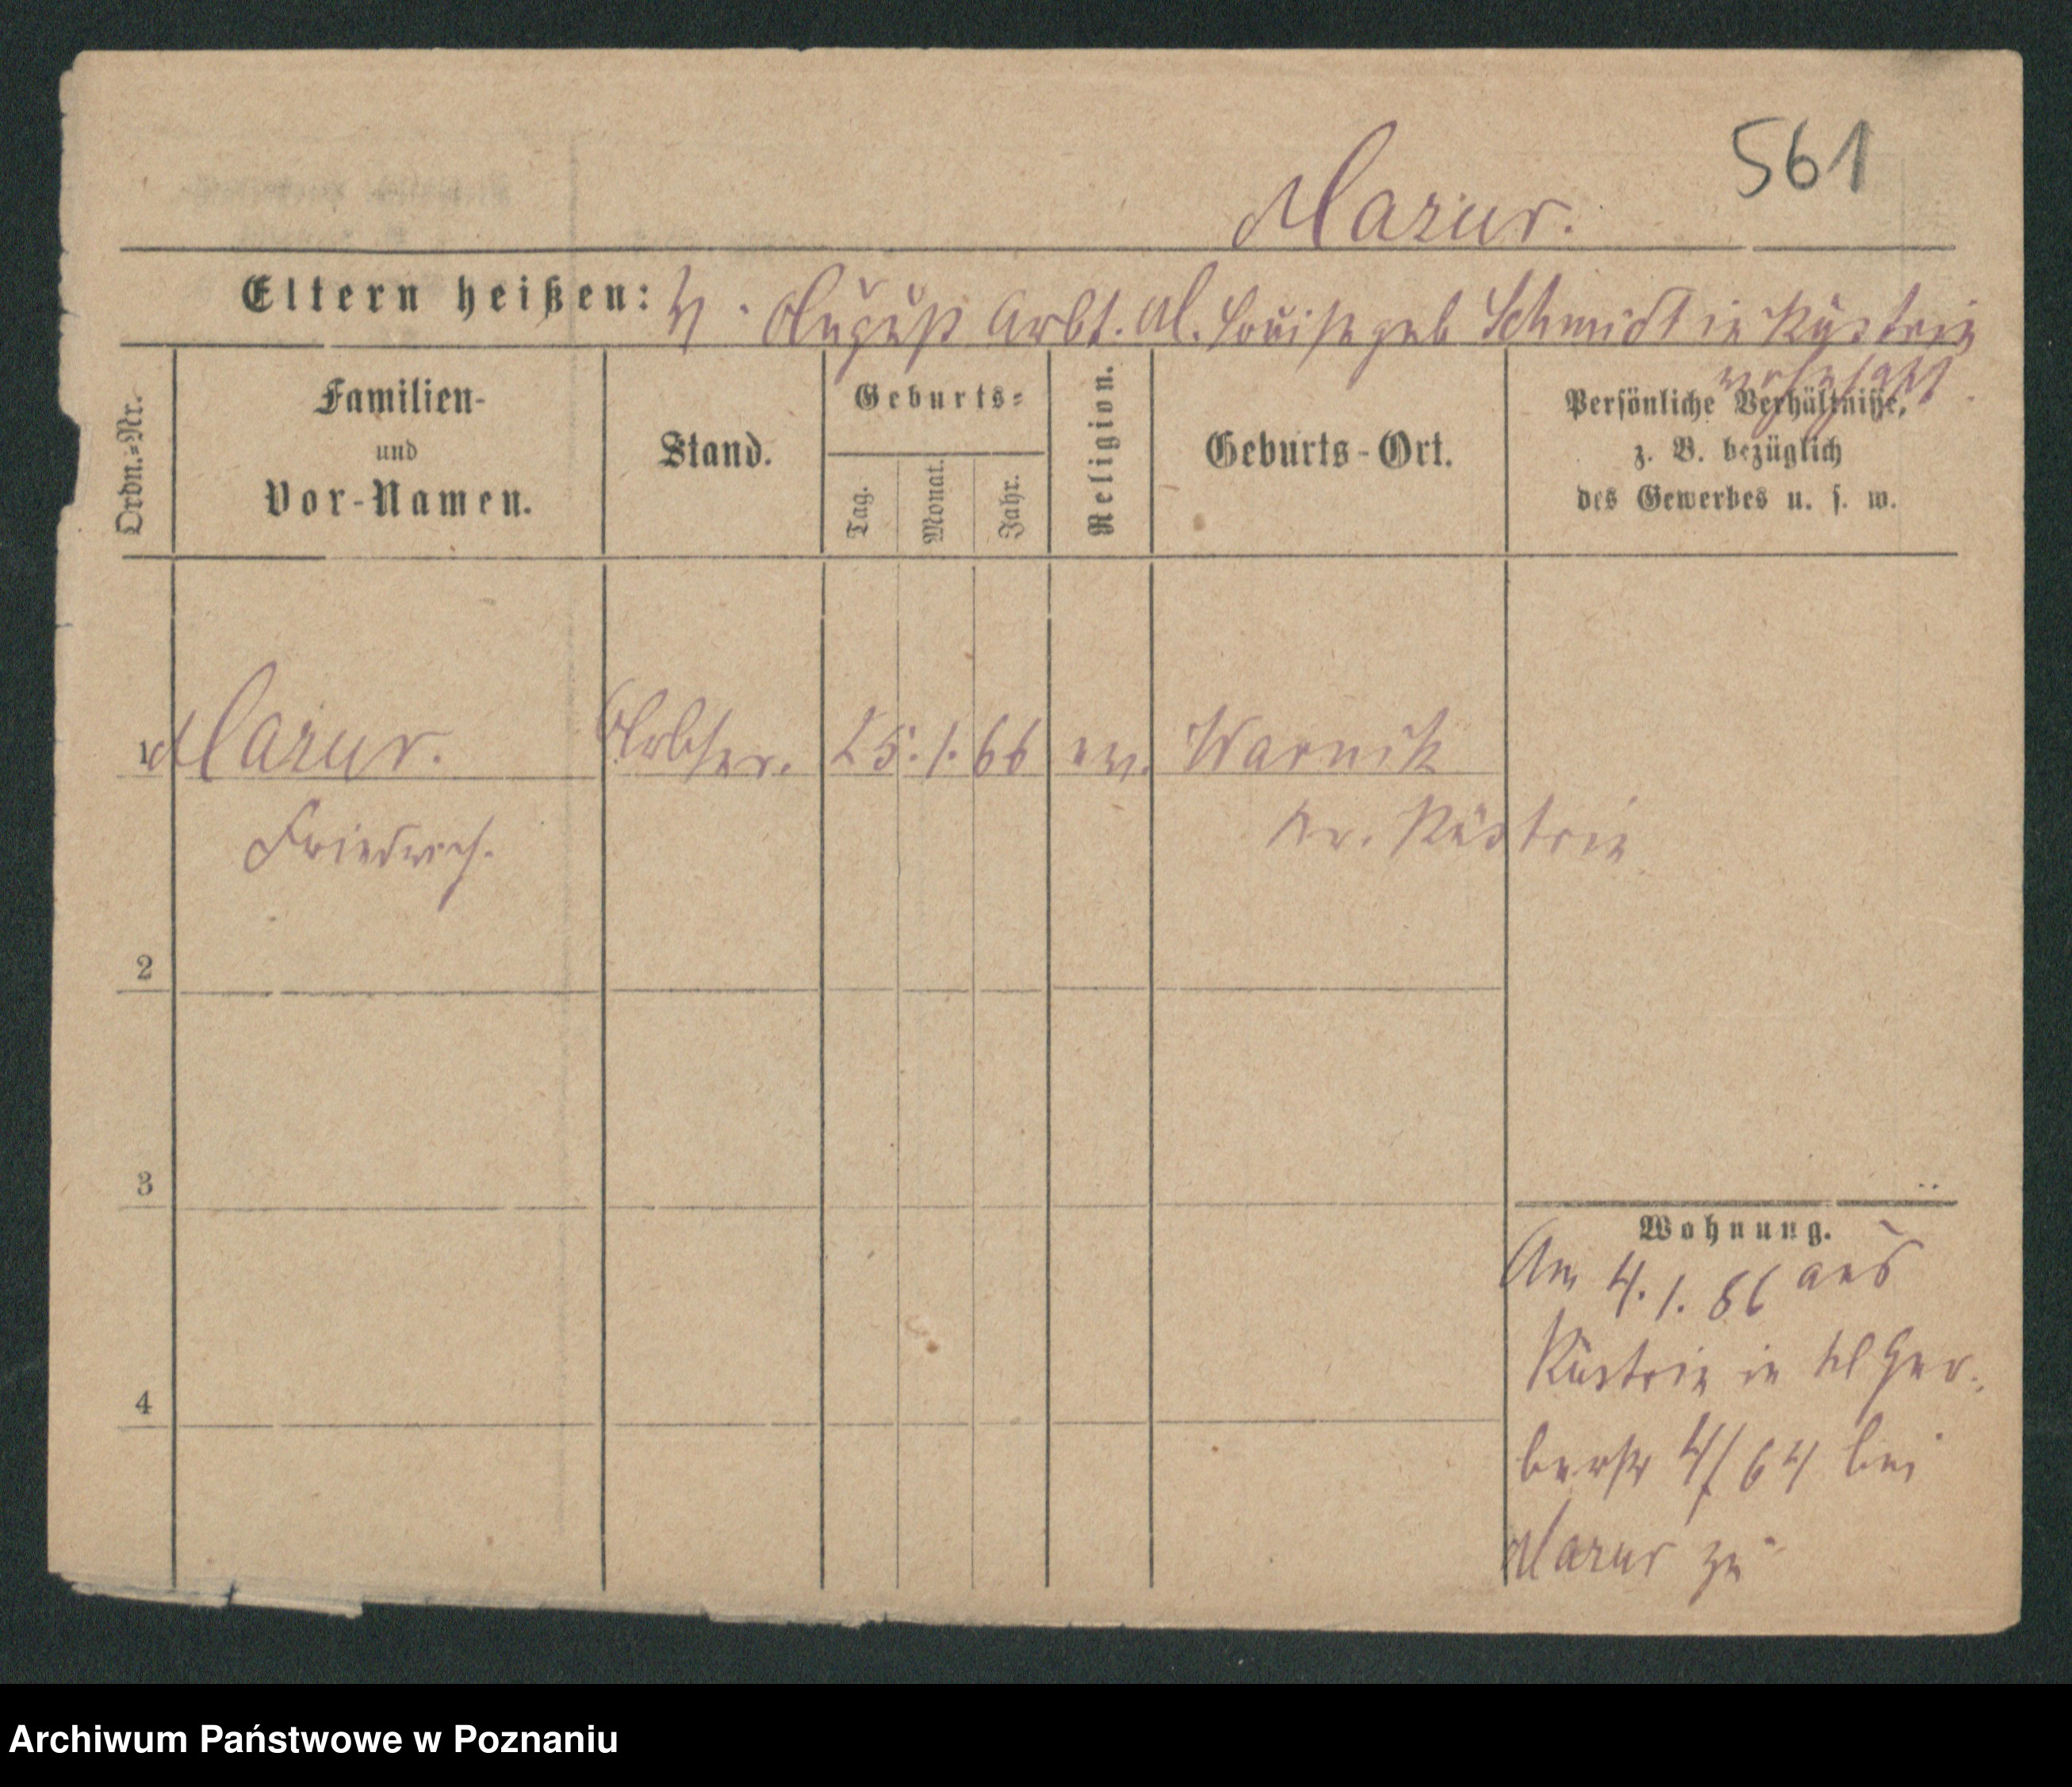 561
Mazur.
Eltern heißen: V. August Arbt. M. Louise geb Schmidt in Küstrin
wohnhaft.
Ordn.=Nr.
Familien-
und
Vor-Namen.
Stand.
Geburts=
Tag.
Monat.
Jahr.
Religion.
Geburts-Ort.
Persönliche Verhältnisse,
z. B. bezüglich
des Gewerbes u. s. w.
1 Mazur. Arbter. 25. 1. 66 ev. Warnik
Friedrich. Kr. Küstrin
2
3
4
Wohnung.
Am 4. 1. 86 aus
Küstrin in Kl Ger-
berstr 4/64 bei
Mazur zu
Archiwum Państwowe w Poznaniu